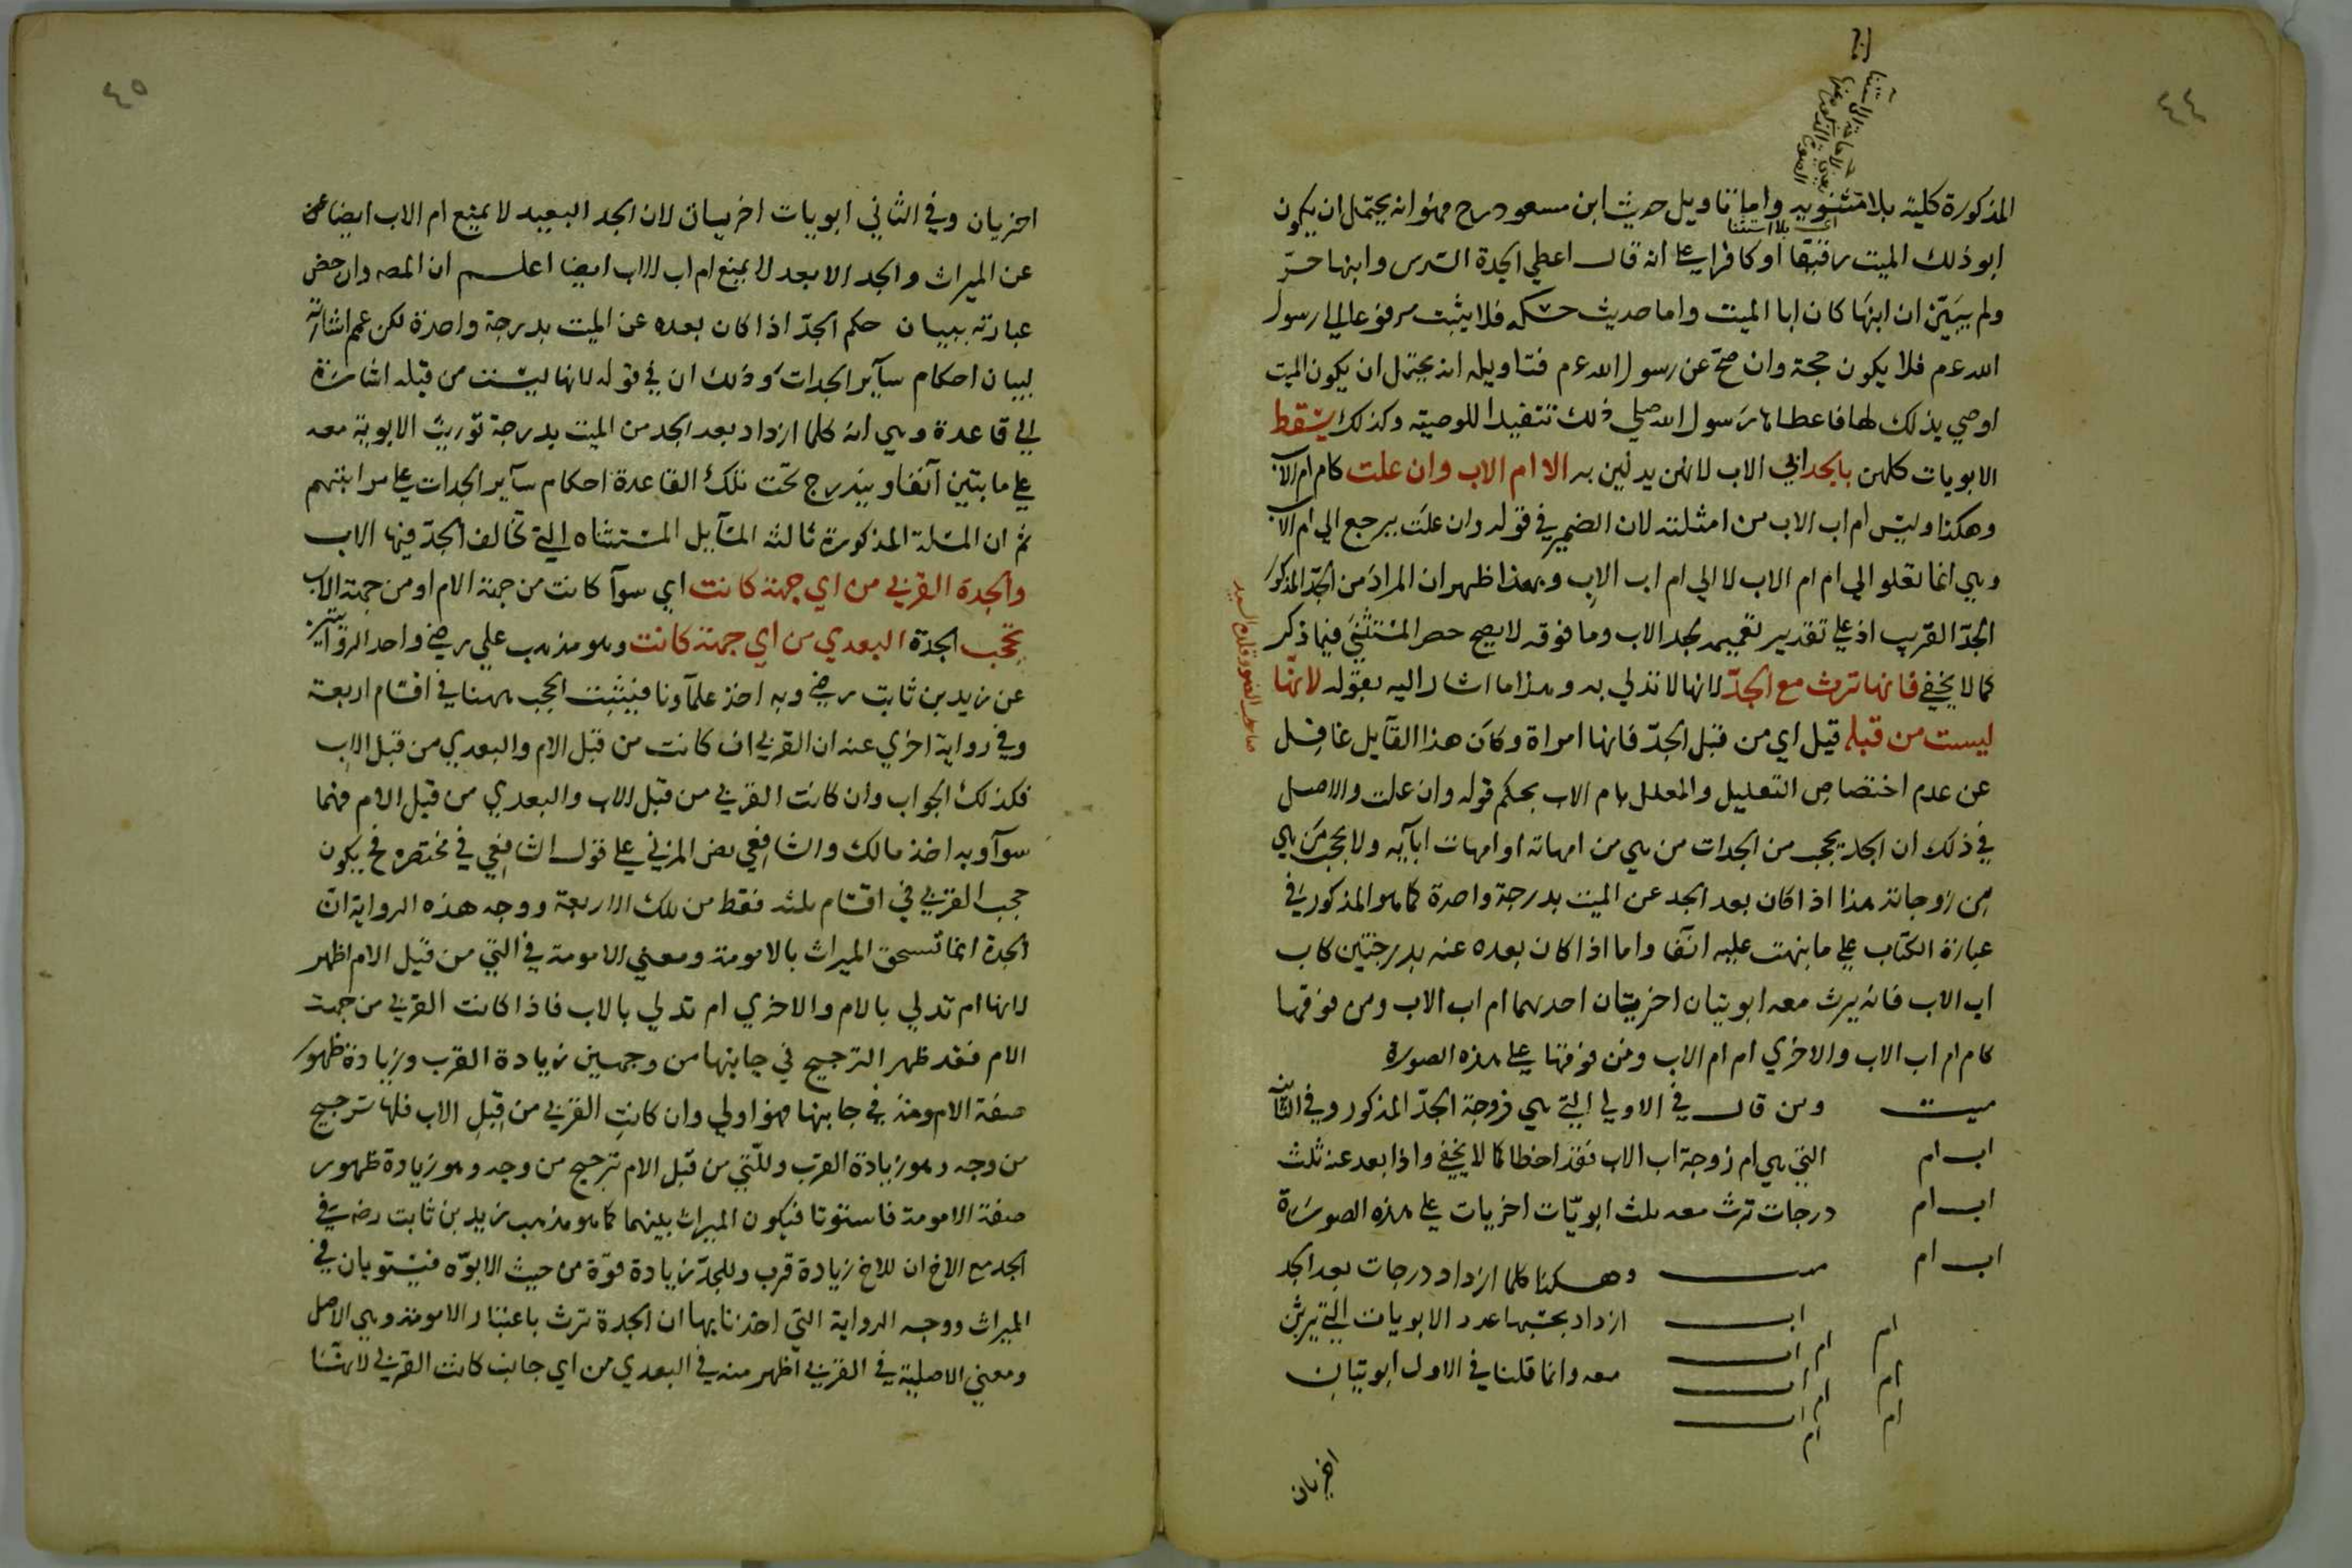 ٤٤
المذكورة كلية بلا مثنوية واما تاويل حديث ابن مسعود رح فهو انه يحتمل ان يكون
اي بلا استثنا
ابو ذلك الميت رقيقا او كافرا على انه قال اعطي الجدة السدس وابنها حرّ
ولم يبيّن ان ابنها كان ابا الميت واما حديث حكمه فلا يثبت مرفوعا الى رسول
الله عم فلا يكون حجة وان صحّ عن رسول الله عم فتاويله انه يحتمل ان يكون الميت
اوصي بذلك لها فاعطاها رسول الله صلى ذلك تنفيذا للوصية وكذلك يسقط
الابويات كلهن بالجد ابي الاب لانهن يدلين به الا ام الاب وان علت كام ام الاب
وهكذا وليس ام اب الاب من امثلته لان الضمير في قوله وان علت يرجع الي ام الاب
وهي انما تعلو الي ام ام الاب لا الي ام اب الاب وبهذا ظهر ان المراد من الجدّ المذكور
الجدّ القريب اذ على تقدير تعميمه لجد الاب وما فوقه لا يصح حصر المستثنى فيما ذكر
كما لا يخفي فانها ترث مع الجدّ لانها لا تدلي به وهذا ما اشار اليه بقوله لانها
ليست من قبله قيل اي من قبل الجدّ فانها امراة وكان هذا القآيل غافل
عن عدم اختصاص التعليل والمعلل بام الاب بحكم قوله وان علت والاصل
في ذلك ان الجد يحجب من الجدات من هي من امهاته او امهات ابآيه ولا يحجب من هي
من زوجاته هذا اذا كان بعد الجد عن الميت بدرجة واحدة كما هو المذكور في
عبارة الكتاب على ما نبهت عليه انفا واما اذا كان بعده عنه بدرجتين كاب
اب الاب فانه يرث معه ابويتان اخريتان احدهما ام اب الاب ومن فوقها
كام ام اب الاب والاخري ام ام الاب ومن فوقها على هذه الصورة
ميت ومن قال في الاولى التي هي زوجة الجدّ المذكور وفي الثانية
اب ام التي هي ام زوجة اب الاب فقد اخطا كما لا يخفي واذا بعد عنه ثلث
اب ام درجات ترث معه ثلث ابويّات اخريات على هذه الصورة
اب ام ميت وهكذا كلما ازداد درجات بعد الجد
اب ام ازداد بحسبها عدد الابويات التي يرثن
اب ام ام معه وانما قلنا في الاول ابويتان
اب ام ام
اب ام
اخريان
٤٥
اخريان وفي الثاني ابويات اخريات لان الجد البعيد لا يمنع ام الاب ايضا عن
عن الميراث والجد الابعد لا يمنع ام اب الاب ايضا اعلم ان المصه وان خص
عبارته ببيان حكم الجدّ اذا كان بعده عن الميت بدرجة واحدة لكن عمم اشارته
لبيان احكام سآير الجدات وذلك ان في قوله لانها ليست من قبله اشارة
الي قاعدة وهي انه كلما ازداد بعد الجد من الميت بدرجة توريث الابوية معه
على ما بتين آنفا ويندرج تحت تلك القاعدة احكام سآير الجدات على مراتبهم
ثم ان المسلة المذكورة ثالثة المسآيل المستثناه التي تخالف الجدّ فيها الاب
والجدة القربي من اي جهة كانت اي سوآ كانت من جهة الام او من جهة الاب
تحجب الجدة البعدي من اي جهة كانت وهو مذهب علي رضى واحد الروآيتين
عن زيد بن ثابت رضى وبه اخذ علمآونا فيثبت الحجب ههنا في اقسام اربعة
وفي رواية اخري عنه ان القربي ان كانت من قبل الام والبعدي من قبل الاب
فكذلك الجواب وان كانت القربي من قبل الاب والبعدي من قبل الام فهما
سوآ وبه اخذ مالك والشافعي نص المزني على قول الشافعي في مختصره فح يكون
حجب القربي في اقسام ثلثة فقط من تلك الاربعة ووجه هذه الرواية انّ
الجدة انما تستحق الميراث بالامومة ومعني الامومة في التي من قبل الام اظهر
لانها ام تدلي بالام والاخري ام تدلي بالاب فاذا كانت القربي من جهة
الام فقد ظهر الترجيح في جانبها من وجهين زيادة القرب وزيادة ظهور
صفة الامومة في جانبها فهو اولي وان كانت القربي من قبل الاب فلها ترجيح
من وجه وهو زيادة القرب وللّتي من قبل الام ترجيح من وجه وهو زيادة ظهور
صفة الامومة فاستوتا فيكون الميراث بينهما كما هو مذهب زيد بن ثابت رضه في
الجد مع الاخ ان للاخ زيادة قرب وللجدّ زيادة قوّة من حيث الابوّه فيستويان في
الميراث ووجه الرواية التي اخذنا بها ان الجدة ترث باعتبار الامومة وهي الاصل
ومعني الاصلية في القربي اظهر منه في البعدي من اي جانب كانت القربي لانّها